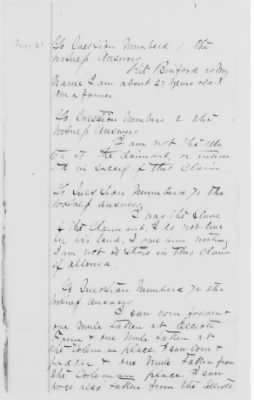 To Question Numberd 1 the
witness Answers
Pet Binford is My
Name I am about 27 years old &
am a Farmer
To Question Numberd 2 the
witness Answers
I am not the
to the Claimant, or
in of this Claim
To Question Numberd 70 the
witness answers
I was the Slave
of the Claimant, I do not live
on his land, I owe him nothing
I am not to Share in this claim
if allowed
To Question Numberd 72 the
witness answers
I saw corn fodder &
one Mule taken at
Farm & one Mule taken at
the place I saw corn &
fodder & one Mule taken from
the place. I saw
also taken from the